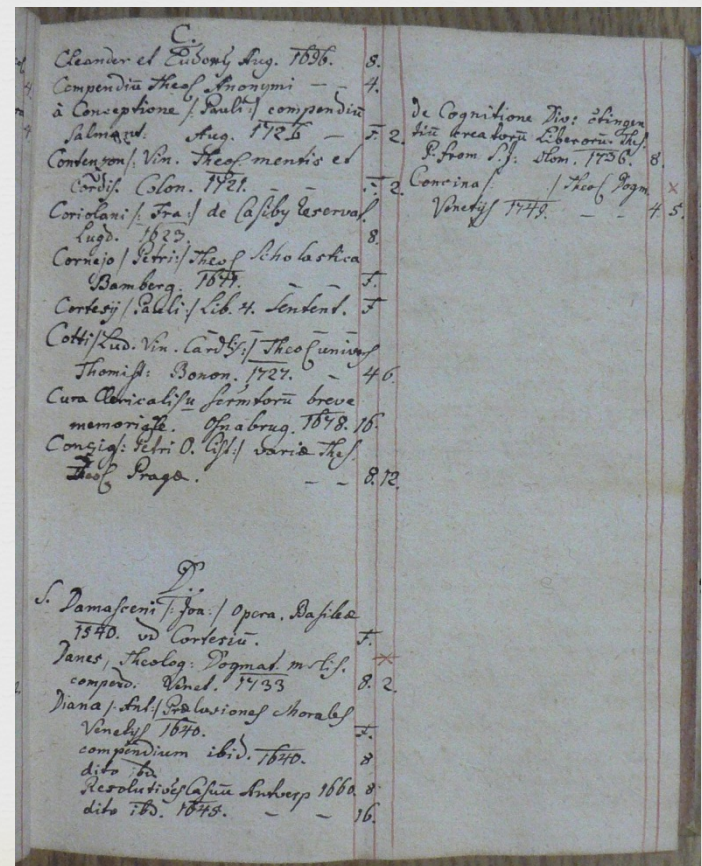 C.
Cleander et Eudoxus Aug. 1696. 8.
Compendiū Theol Anonymi — — 4.
à Conceptione /: Pauli :/ compendiū
Salmant: Aug. 1726 — F. 2.
Contenson /: Vin. Theol mentis et
Cordis. Colon. 1721. — — F. 2.
Coriolani /: Fra :/ de Casiby reservat
Lugd. 1623. 8.
Cornejo / Petri :/ Theol Scholastica
Bamberg. 1671. — — F.
Cortesij / Pauli :/ Lib. 4. Sentent. F
Cotti / Lud. Vin. Cardlis :/ Theol univers
Thomist: Bonon. 1727. — 4 6.
Cura Clericalis
breve
memoriale. Osnabrug. 1678. 16.
Petri O. Cist :/ variæ Thes.
Theol Pragæ. — — 8. 12.
D.
S. Damasceni /: Joa: / Opera. Basileæ
1540. vd Cortesiū. F.
Danes, Theolog: Dogmat.
compend. Venet. 1733 8. 2.
Diana /: Ant :/ Prælusiones Morales
Venetijs 1640. F.
compendium ibid. 1640. 8
dito ibd.
Resolutiōes Casuū Antverp 1660. 8
dito ibd. 1645. — — 16.
de Cognitione Div:
creatorū Liberorū. Thes.
P. from S. J: Olom. 1736. 8.
Concina /: / Theol Dogm
Venetijs 1749. — — 4. 5.